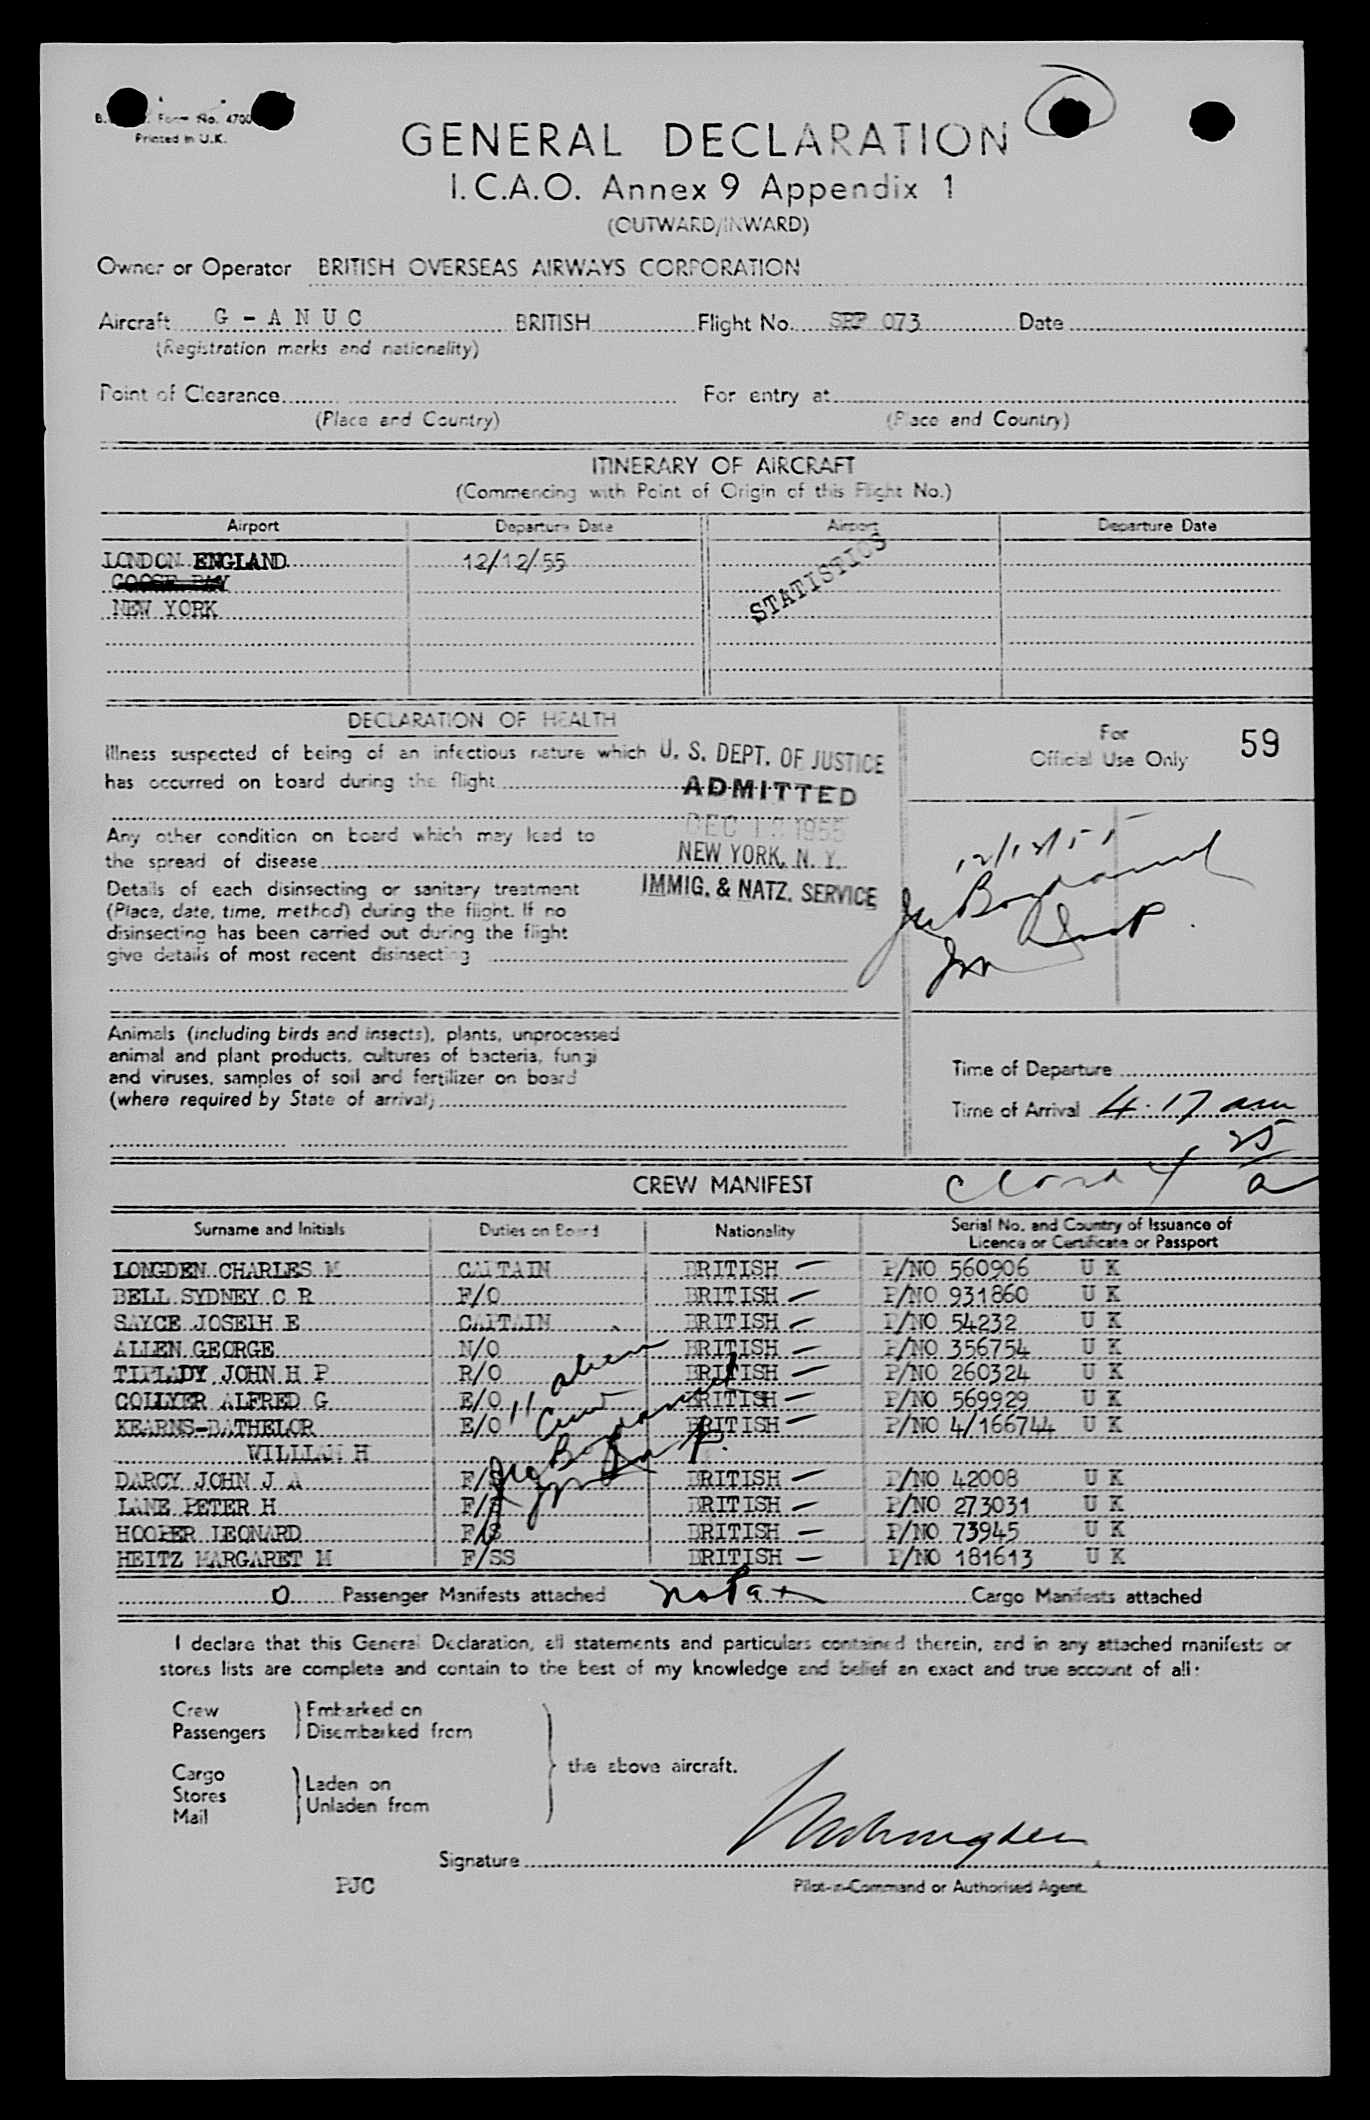 Form No. 4700
Printed in U.K.
GENERAL DECLARATION
I.C.A.O. Annex 9 Appendix 1
(OUTWARD/INWARD)
Owner or Operator BRITISH OVERSEAS AIRWAYS CORPORATION
Aircraft G - A N U C BRITISH Flight No. 073 Date
(Registration marks and nationality)
Point of Clearance For entry at
(Place and Country) (Place and Country)
ITINERARY OF AIRCRAFT
(Commencing with Point of Origin of this Flight No.)
Airport Departure Date Airport Departure Date
LONDON ENGLAND 12/12/55
GOOSE BAY
NEW YORK
STATISTICS
DECLARATION OF HEALTH
For
Official Use Only 59
Illness suspected of being of an infectious nature which
has occurred on board during the flight
U. S. DEPT. OF JUSTICE
ADMITTED
DEC 1 1955
NEW YORK, N. Y.
IMMIG. & NATZ. SERVICE
Any other condition on board which may lead to
the spread of disease
Details of each disinsecting or sanitary treatment
(Place, date, time, method) during the flight. If no
disinsecting has been carried out during the flight
give details of most recent disinsecting
12/13/55
Animals (including birds and insects), plants, unprocessed
animal and plant products, cultures of bacteria, fungi
and viruses, samples of soil and fertilizer on board
(where required by State of arrival)
Time of Departure
Time of Arrival 4.17 am
4 25 a
CREW MANIFEST
Surname and Initials Duties on Board Nationality Serial No. and Country of Issuance of
Licence or Certificate or Passport
LONGDEN CHARLES M CAPTAIN BRITISH P/NO 560906 U K
BELL SYDNEY C R F/O BRITISH P/NO 931860 U K
SAYCE JOSEPH E CAPTAIN BRITISH P/NO 54232 U K
ALLEN GEORGE N/O BRITISH P/NO 356754 U K
TIPLADY JOHN H P R/O BRITISH P/NO 260324 U K
COLLYER ALFRED G E/O BRITISH P/NO 569929 U K
KEARNS-BATHELOR E/O BRITISH P/NO 4/166744 U K
WILLIAM H
11 alien
Crew
DARCY JOHN J A F/S BRITISH P/NO 42008 U K
LANE PETER H F/S BRITISH P/NO 273031 U K
HOOPER LEONARD F/S BRITISH P/NO 73945 U K
HEITZ MARGARET M F/SS BRITISH P/NO 181613 U K
0 Passenger Manifests attached no Pax Cargo Manifests attached
I declare that this General Declaration, all statements and particulars contained therein, and in any attached manifests or
stores lists are complete and contain to the best of my knowledge and belief an exact and true account of all:
Crew Embarked on
Passengers Disembarked from
the above aircraft.
Cargo
Stores Laden on
Mail Unladen from
Signature
PJC Pilot-in-Command or Authorised Agent.